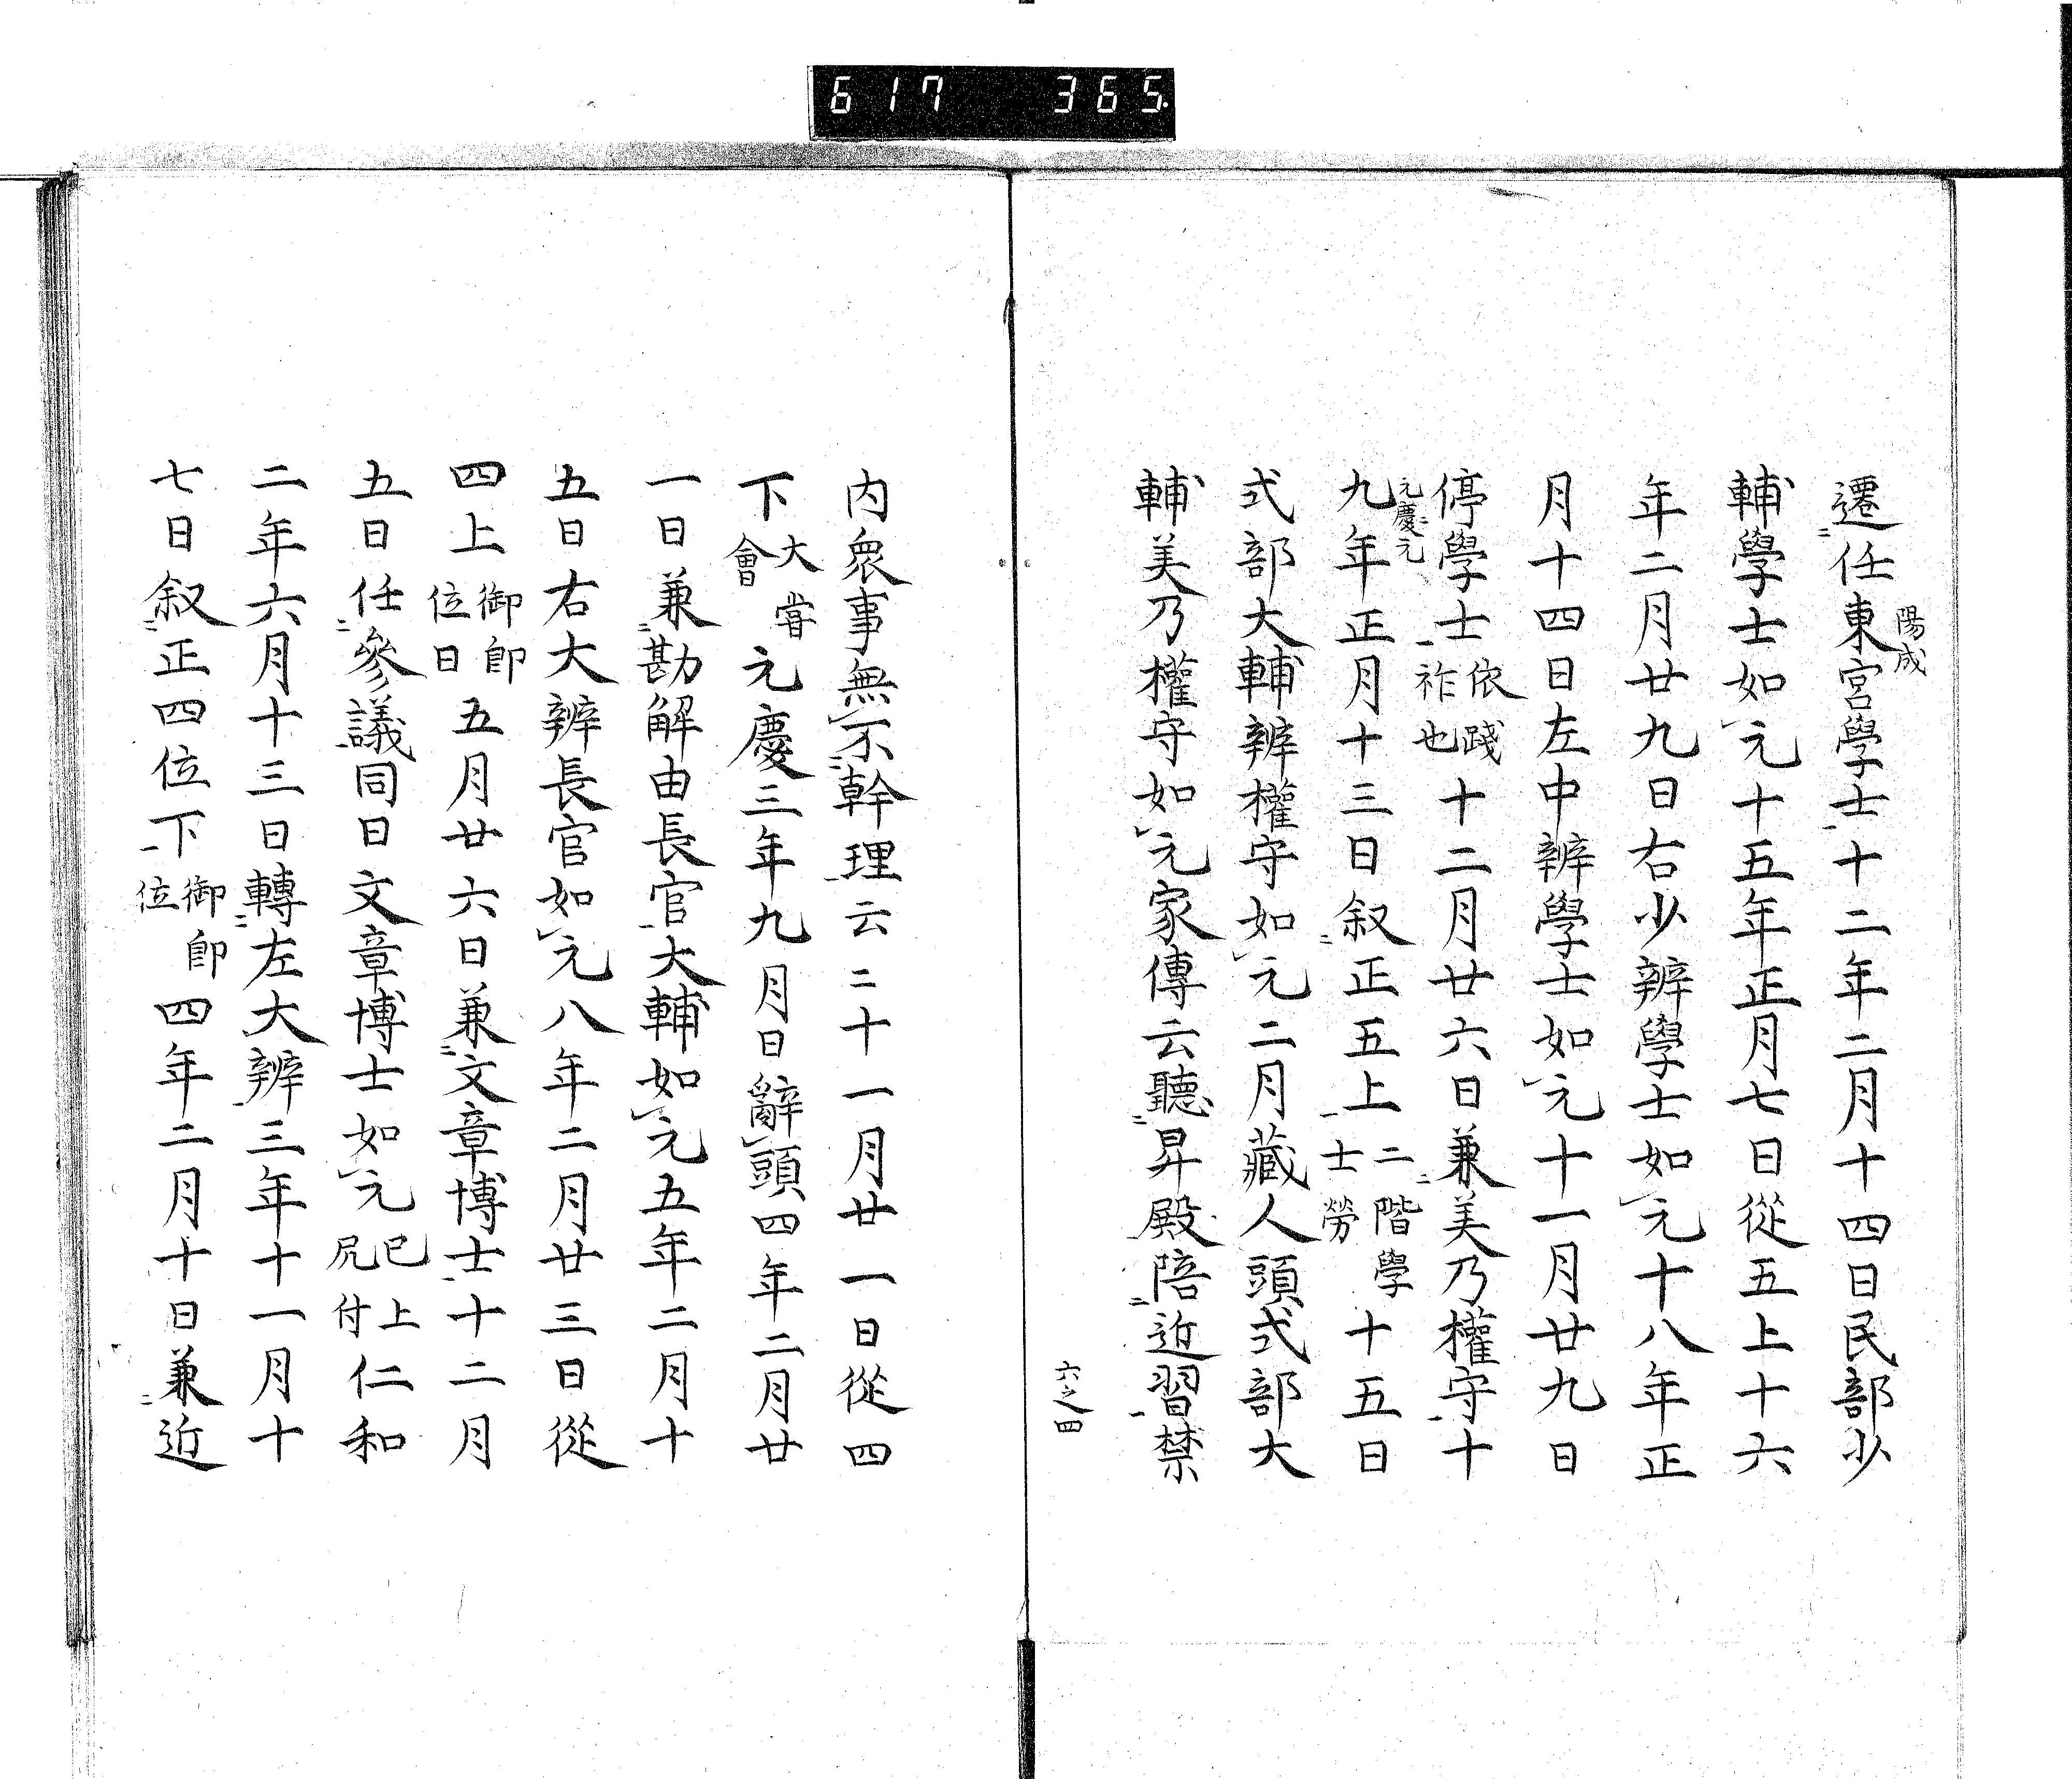 617 365
遷任東宮學士十二年二月十四日民部少
陽成
輔學士如元十五年正月七日從五上十六
年二月廿九日右少辨學士如元十八年正
月十四日左中辨學士如元十一月廿九日
停學士依踐祚也十二月廿六日兼美乃權守十
元慶元
九年正月十三日叙正五上二階學士勞十五日
式部大輔辨權守如元二月藏人頭式部大
輔美乃權守如元家傳云聽昇殿陪近習禁
六之四
内衆事無不幹理云二十一月廿一日從四
下大嘗會元慶三年九月日辭頭四年二月廿
一日兼勘解由長官大輔如元五年二月十
五日右大辨長官如元八年二月廿三日從
四上御卽位日五月廿六日兼文章博士十二月
五日任參議同日文章博士如元已上尻付仁和
二年六月十三日轉左大辨三年十一月十
七日叙正四位下御卽位四年二月十日兼近